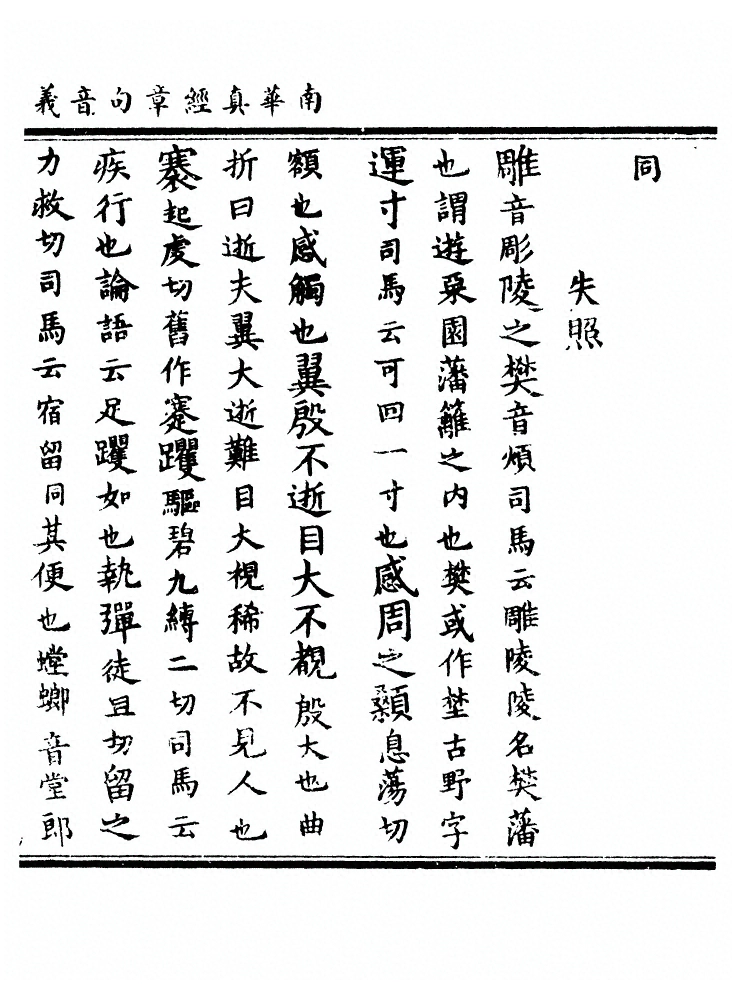 南華真經章句音義
同
失照
雕音彫陵之樊音煩司馬云雕陵陵名樊藩
也謂遊栗園藩籬之内也樊或作埜古野字
運寸司馬云可囬一寸也感周之顙息蕩切
額也感觸也翼殷不逝目大不覩殷大也曲
折曰逝夫翼大逝難目大視稀故不見人也
褰起虔切舊作蹇躩驅碧九縛二切司馬云
疾行也論語云足躩如也執彈徒旦切留之
力救切司馬云宿留同其便也螳螂音堂郎